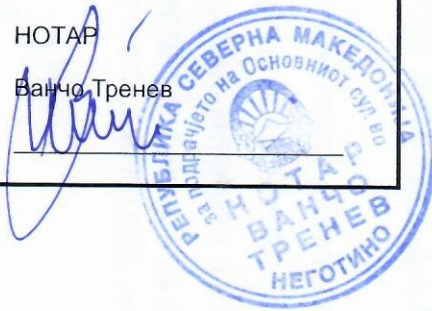 НОТАР
Ванчо Тренев
РЕПУБЛИКА СЕВЕРНА МАКЕДОНИЈА
за подрачјето на Основниот суд во
НОТАР
ВАНЧО
ТРЕНЕВ
НЕГОТИНО